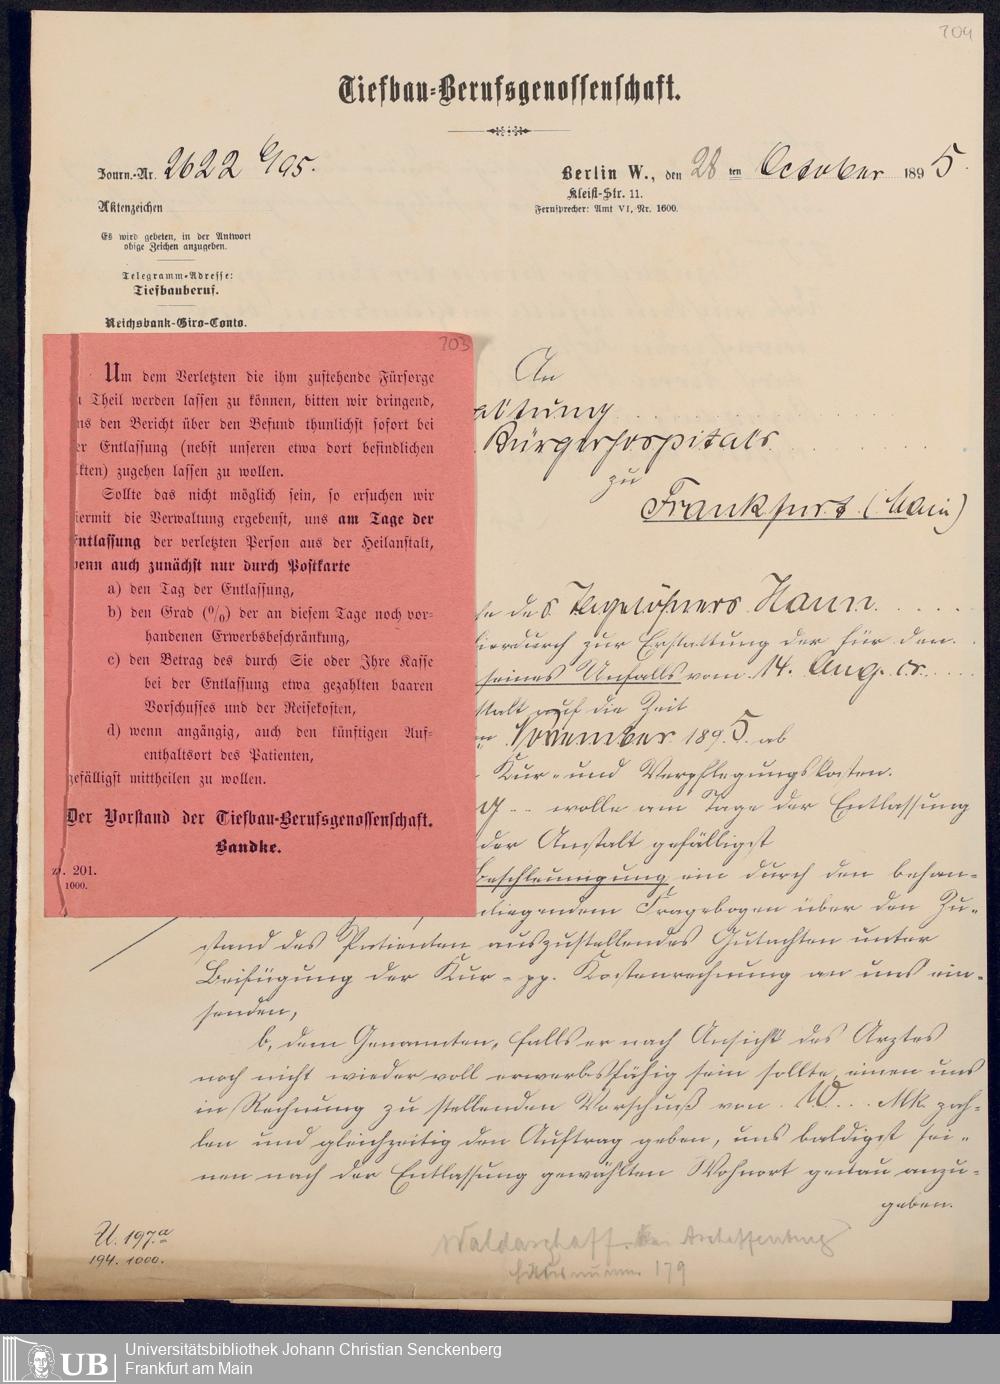 704
Tiefbau-Berufsgenossenschaft.
Journ.-Nr. 2622 /95.
Berlin W., den 28 ten October 1895.
Kleist-Str. 11.
Fernsprecher: Amt VI, Nr. 1600.
Aktenzeichen
Es wird gebeten, in der Antwort
obige Zeichen anzugeben.
Telegramm-Adresse:
Tiefbauberuf.
Reichsbank-Giro-Conto.
703
Um dem Verletzten die ihm zustehende Fürsorge
Theil werden lassen zu können, bitten wir dringend,
ns den Bericht über den Befund thunlichst sofort bei
er Entlassung (nebst unseren etwa dort befindlichen
kten) zugehen lassen zu wollen.
Sollte das nicht möglich sein, so ersuchen wir
iermit die Verwaltung ergebenst, uns am Tage der
ntlassung der verletzten Person aus der Heilanstalt,
wenn auch zunächst nur durch Postkarte
a) den Tag der Entlassung,
b) den Grad (%) der an diesem Tage noch vor-
handenen Erwerbsbeschränkung,
c) den Betrag des durch Sie oder Ihre Kasse
bei der Entlassung etwa gezahlten baaren
Vorschusses und der Reisekosten,
d) wenn angängig, auch den künftigen Auf-
enthaltsort des Patienten,
gefälligst mittheilen zu wollen.
Der Vorstand der Tiefbau-Berufsgenossenschaft.
Bandke.
201.
1000.
An
altung
Bürgerhospitals
zu
Frankfurt (Main)
des Tagelöhners Haun
hierdurch zur Erstattung der für den
seines Unfalls vom 14. Aug. cr.
stalt auf die Zeit
November 1895 ab
Kur- und Verpflegungskosten.
g wolle am Tage der Entlassung
der Anstalt gefälligst
Beschleunigung ein durch den behan-
liegendem Fragebogen über den Zu-
stand des Patienten auszustellendes Gutachten unter
Beifügung der Kur- pp. Kostenrechnung an uns ein-
senden,
b, dem Genannten, falls er nach Ansicht des Arztes
noch nicht wieder voll erwerbsfähig sein sollte, einen uns
in Rechnung zu stellenden Vorschuß von 10 Mk. zah-
len und gleichzeitig den Auftrag geben, uns baldigst sei-
nen nach der Entlassung gewählten Wohnort genau anzu-
geben.
U. 197.a
194. 1000.
Waldaschaff. bei Aschaffenburg
Hausnummer 179
UB
Universitätsbibliothek Johann Christian Senckenberg
Frankfurt am Main